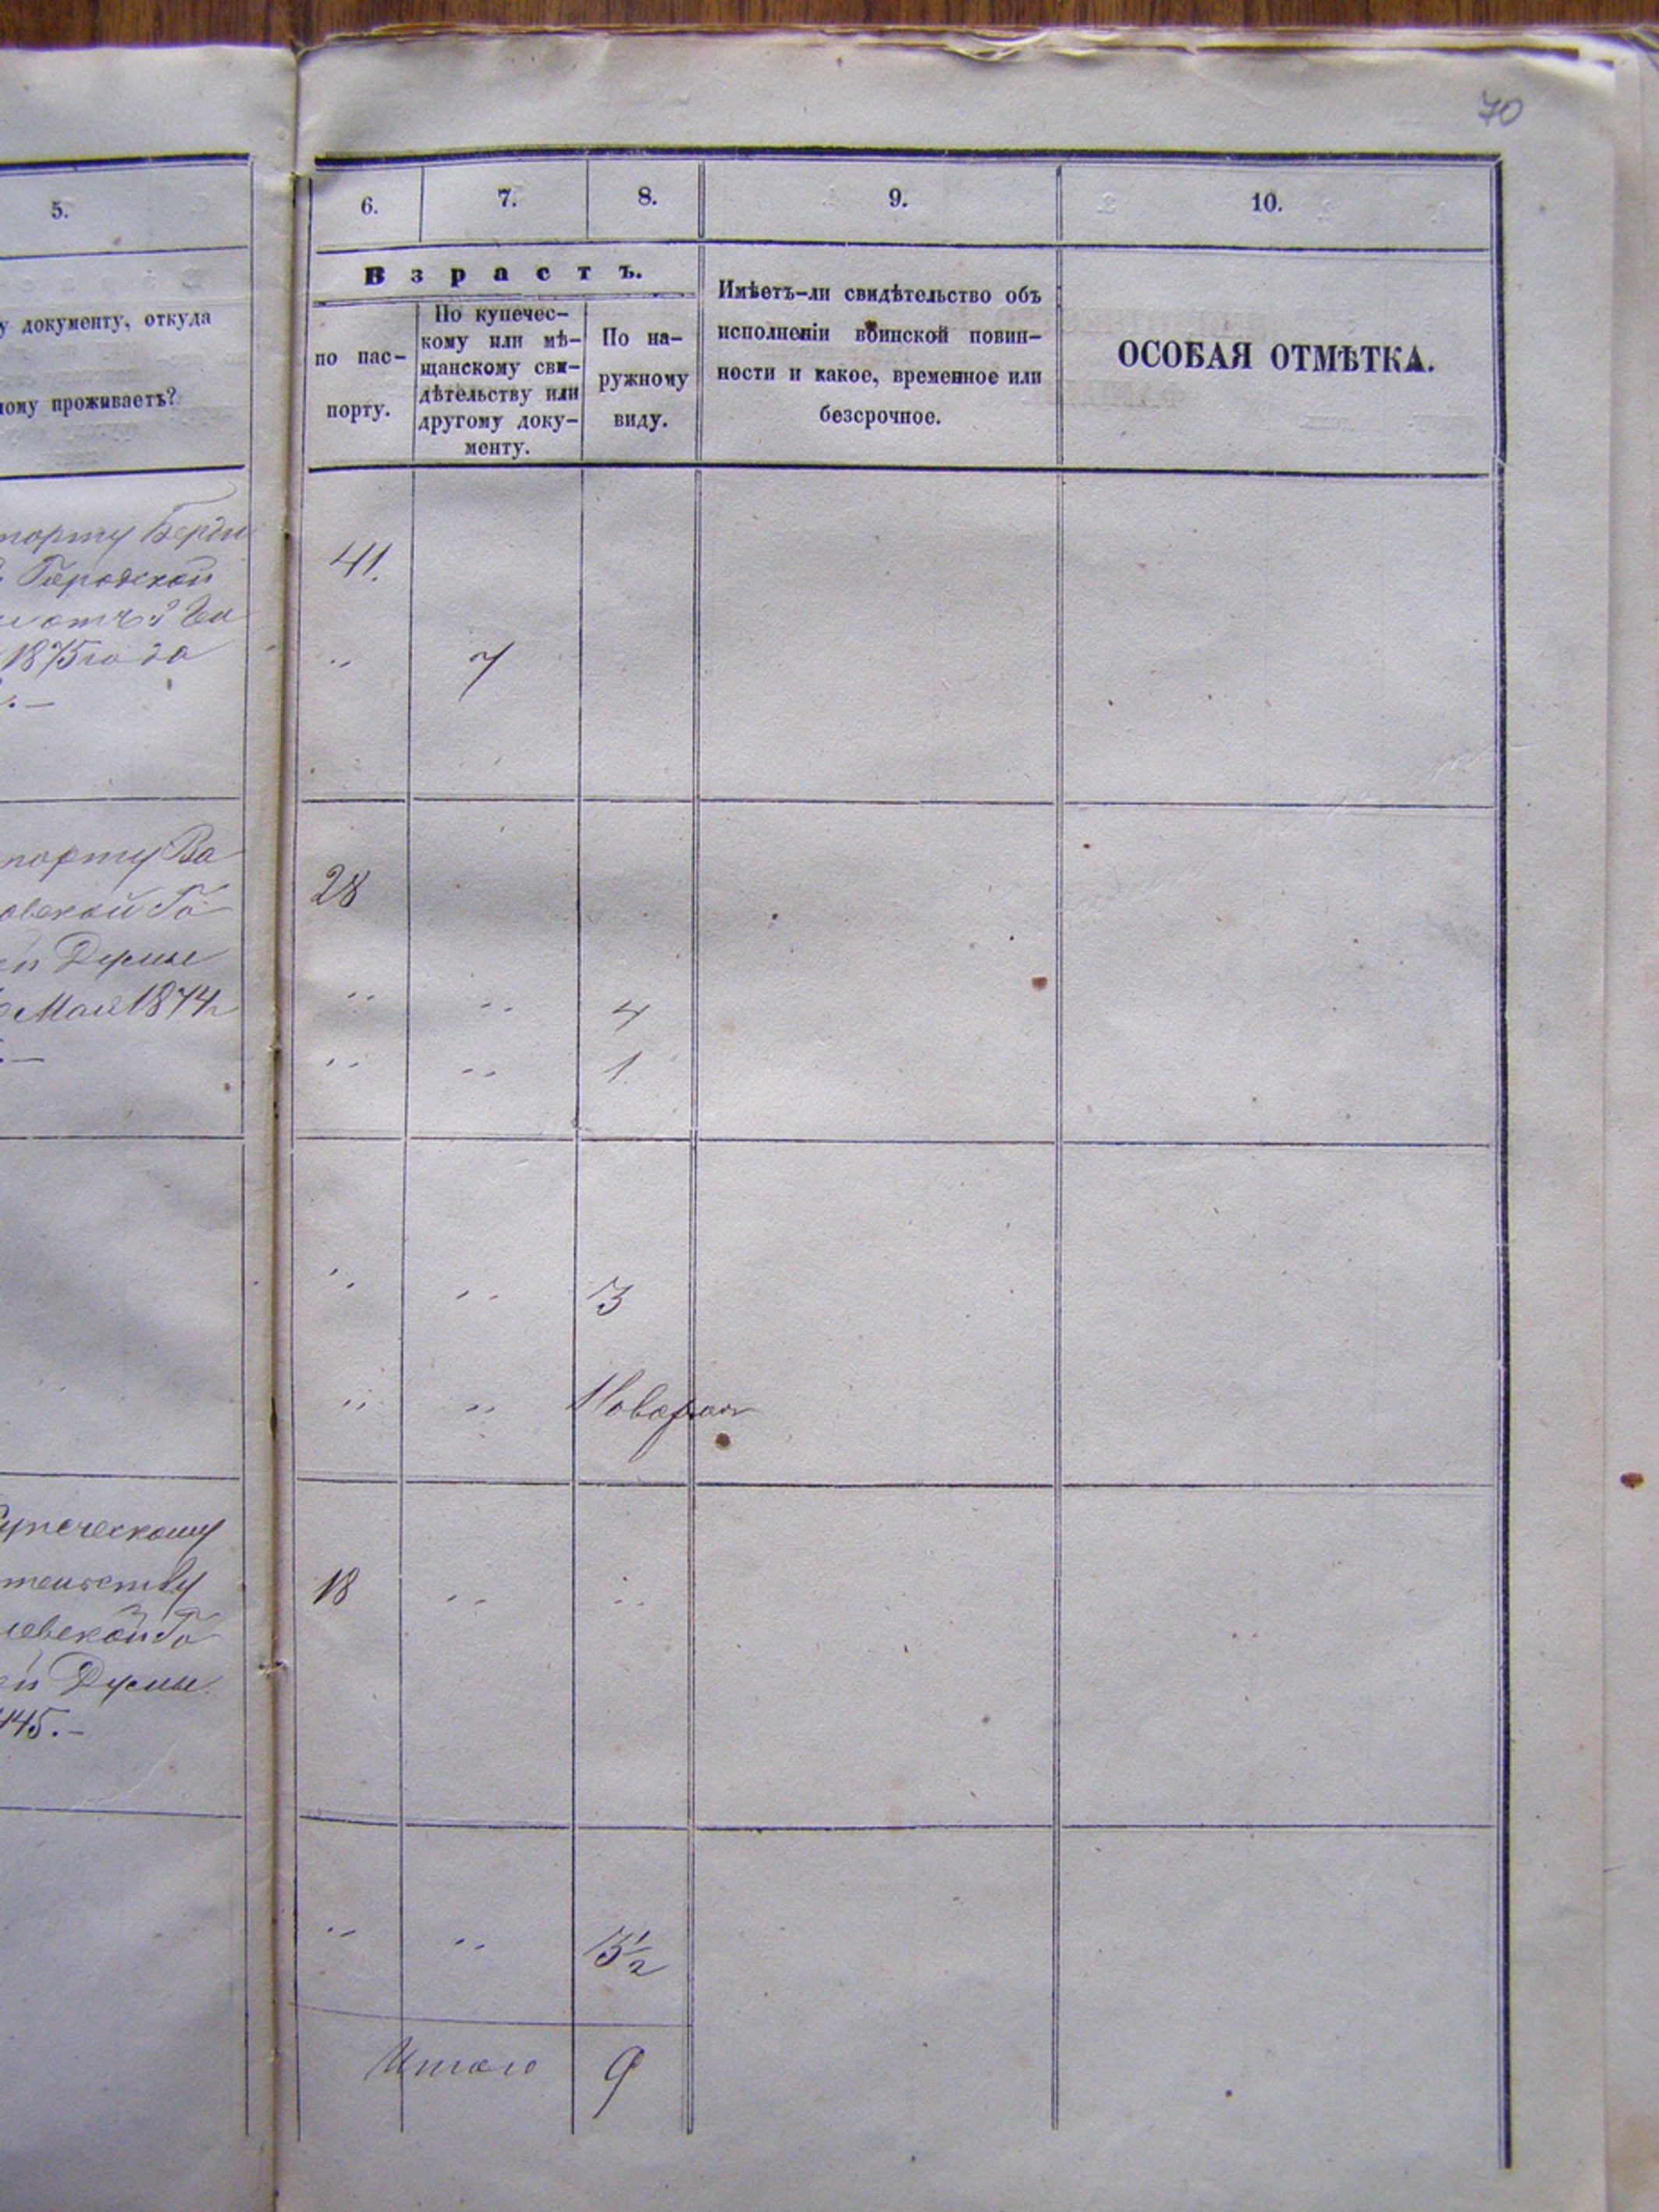 70
5.
6.
7.
8.
9.
10.
у документу, откуда
ому проживаетъ?
Возрастъ.
по пас-
порту.
По купечес-
кому или мѣ-
щанскому сви-
дѣтельству или
другому доку-
менту.
По на-
ружному
виду.
Имѣетъ-ли свидѣтельство объ
исполненіи воинской повин-
ности и какое, временное или
безсрочное.
ОСОБАЯ ОТМѢТКА.
порту Берди
Городской
1875 года
41.
" 7
порту Ва
овской Го
ей Думы
Мая 1874
28
" " 4
" " 1
" " 3
" " Новорож
упеческому
тельству
левской Го
ей Думы
445.-
18 " "
" " 3½
Итого 9